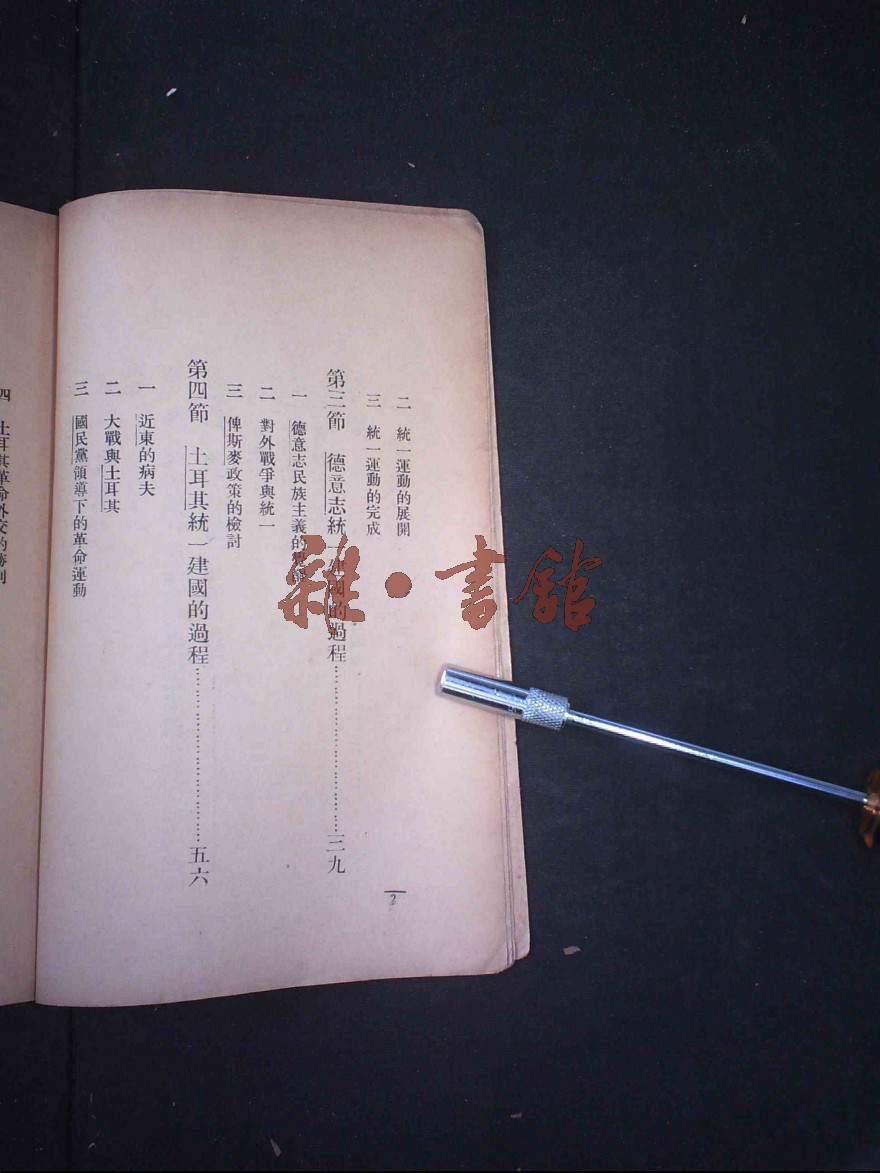 二 統一運動的展開
三 統一運動的完成
第三節 德意志統一建國的過程……三九
一 德意志民族主義的
二 對外戰爭與統一
三 俾斯麥政策的檢討
第四節 土耳其統一建國的過程……五六
一 近東的病夫
二 大戰與土耳其
三 國民黨領導下的革命運動
四 土耳其革命外交的勝利
2
雜·書館